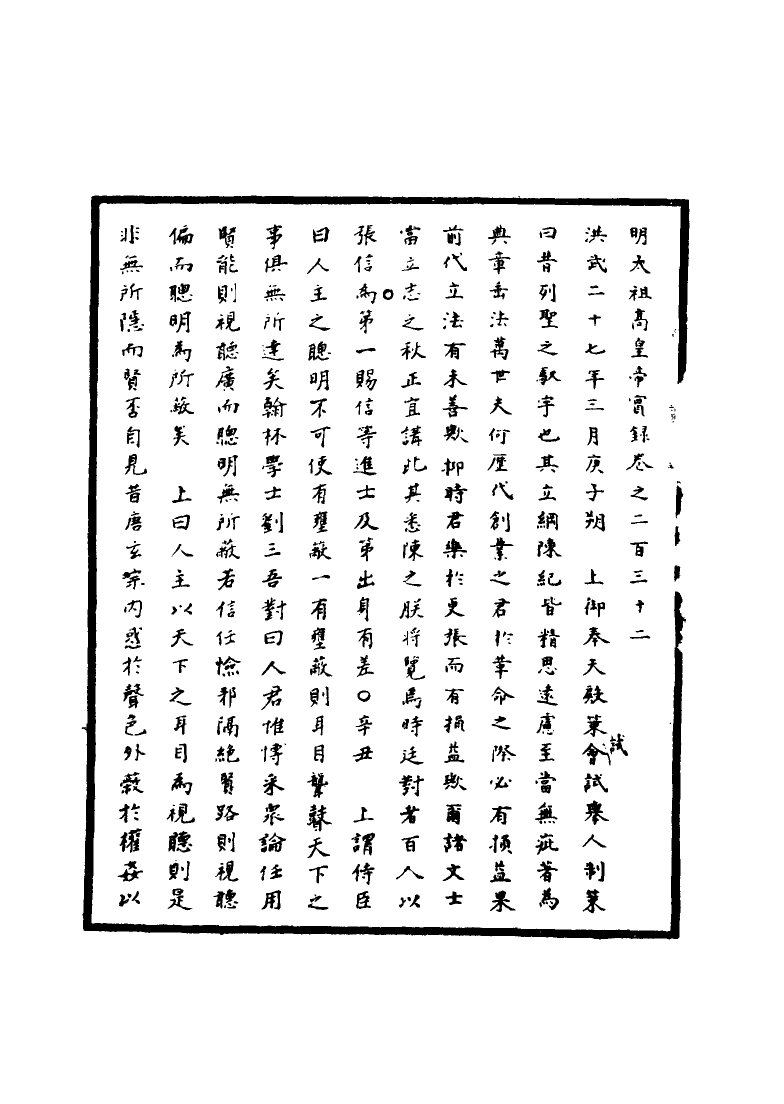 明太祖高皇帝實錄卷之二百三十二
洪武二十七年三月庚子朔　上御奉天殿策會試舉人制策
曰昔列聖之馭宇也其立綱陳紀皆精思遠慮至當無疵著為
典章垂法萬世夫何歷代創業之君於革命之際必有損益果
前代立法有未善歟抑時君樂於更張而有損益歟爾諸文士
當立志之秋正宜講此其悉陳之朕將覽焉時廷對者百人以
張信為第一賜信等進士及第出身有差○辛丑　上謂侍臣
曰人主之聰明不可使有壅蔽一有壅蔽則耳目聾瞽天下之
事俱無所達矣翰林學士劉三吾對曰人君惟博采眾論任用
賢能則視聽廣而聰明無所蔽若信任憸邪隔絕賢路則視聽
偏而聰明為所蔽矣　上曰人主以天下之耳目為視聽則是
非無所隱而賢否自見昔唐玄宗內惑於聲色外蔽於權姦以
試